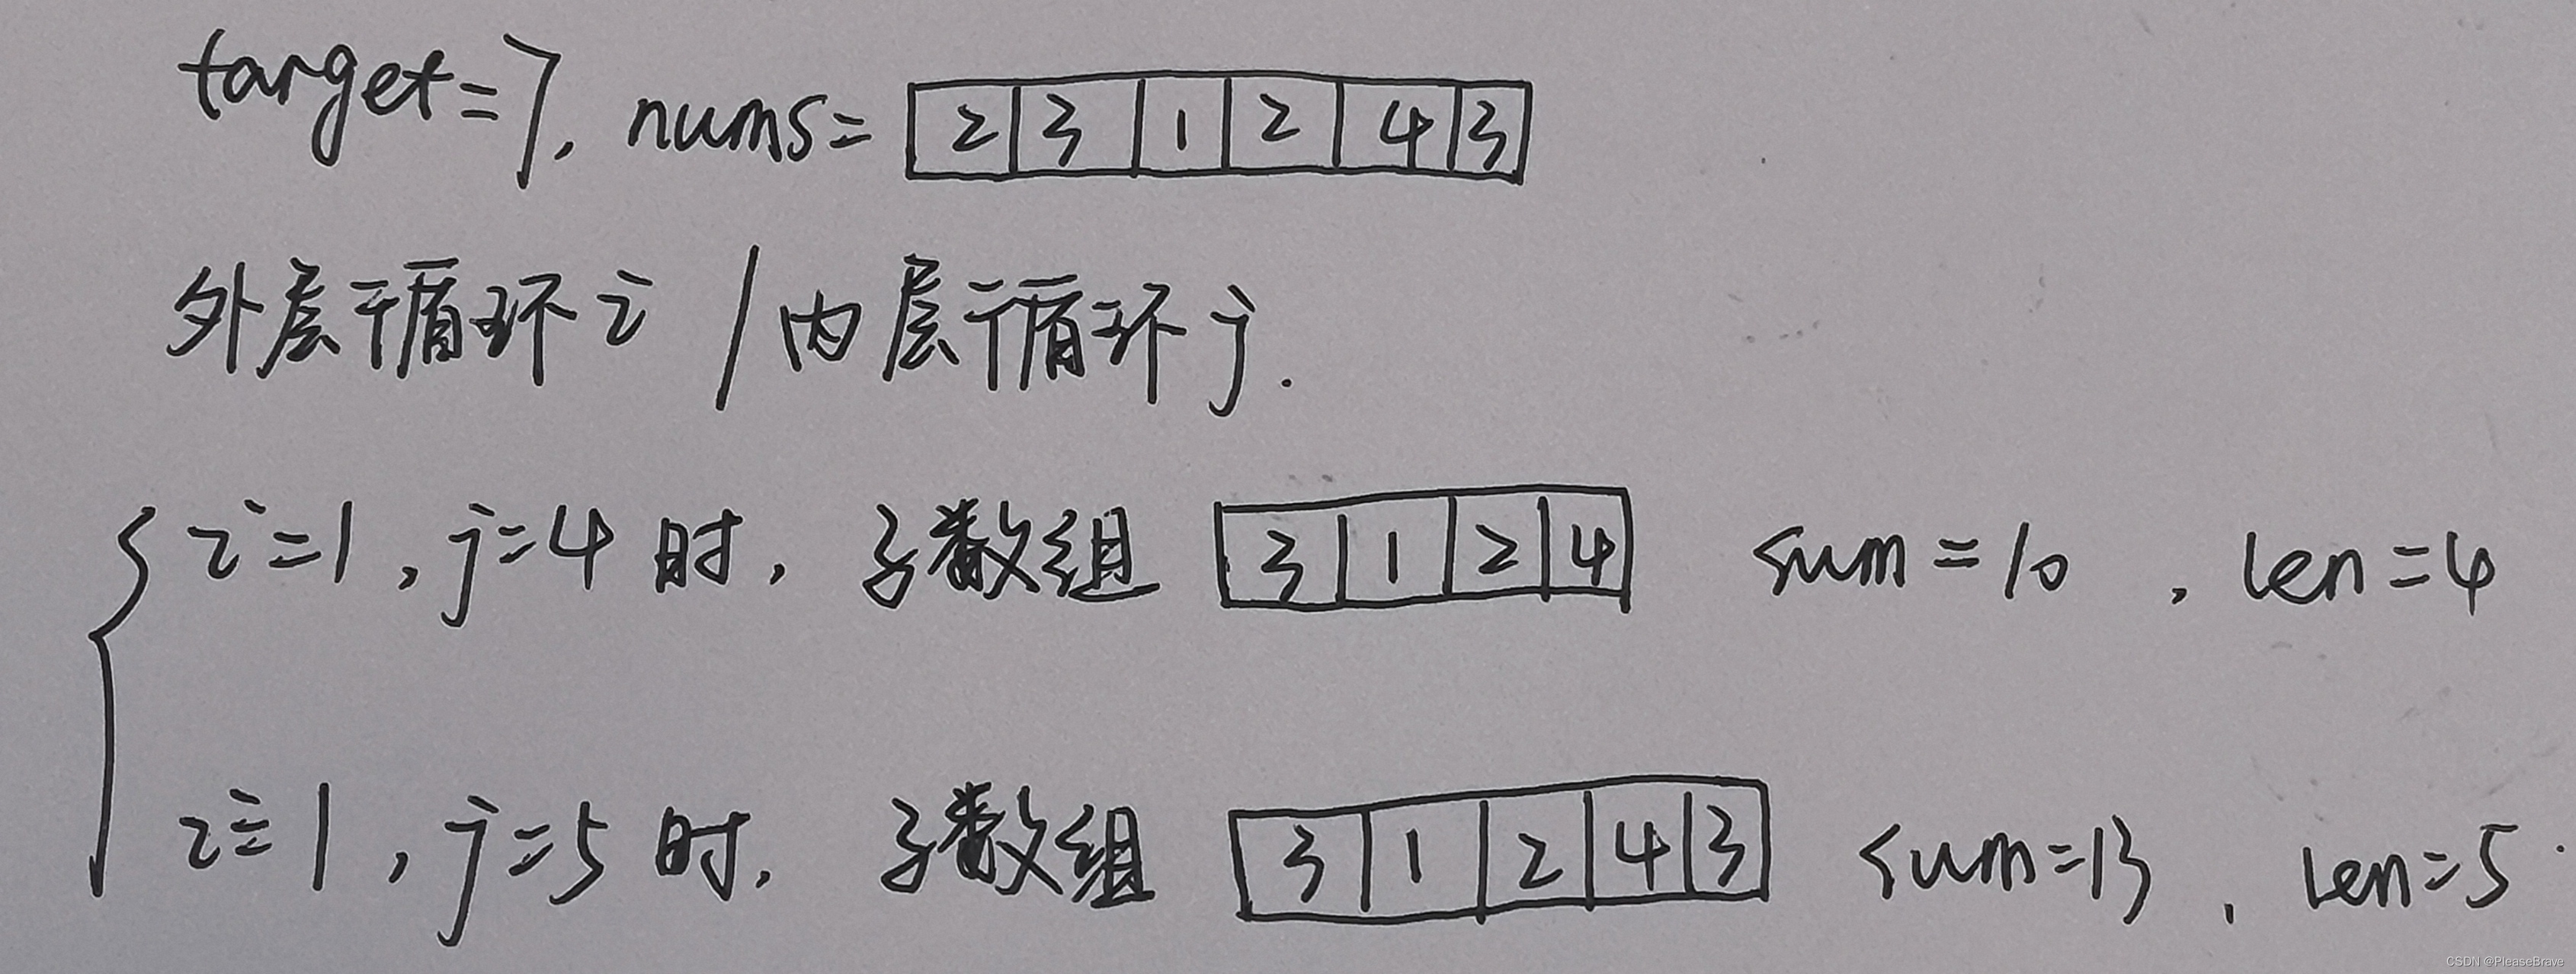 target=7, nums= 2 3 1 2 4 3
外层循环i / 内层循环j.
i=1, j=4时, 子数组 3 1 2 4 sum=10, len=4
i=1, j=5时, 子数组 3 1 2 4 3 sum=13, len=5.
CSDN @PleaseBrave